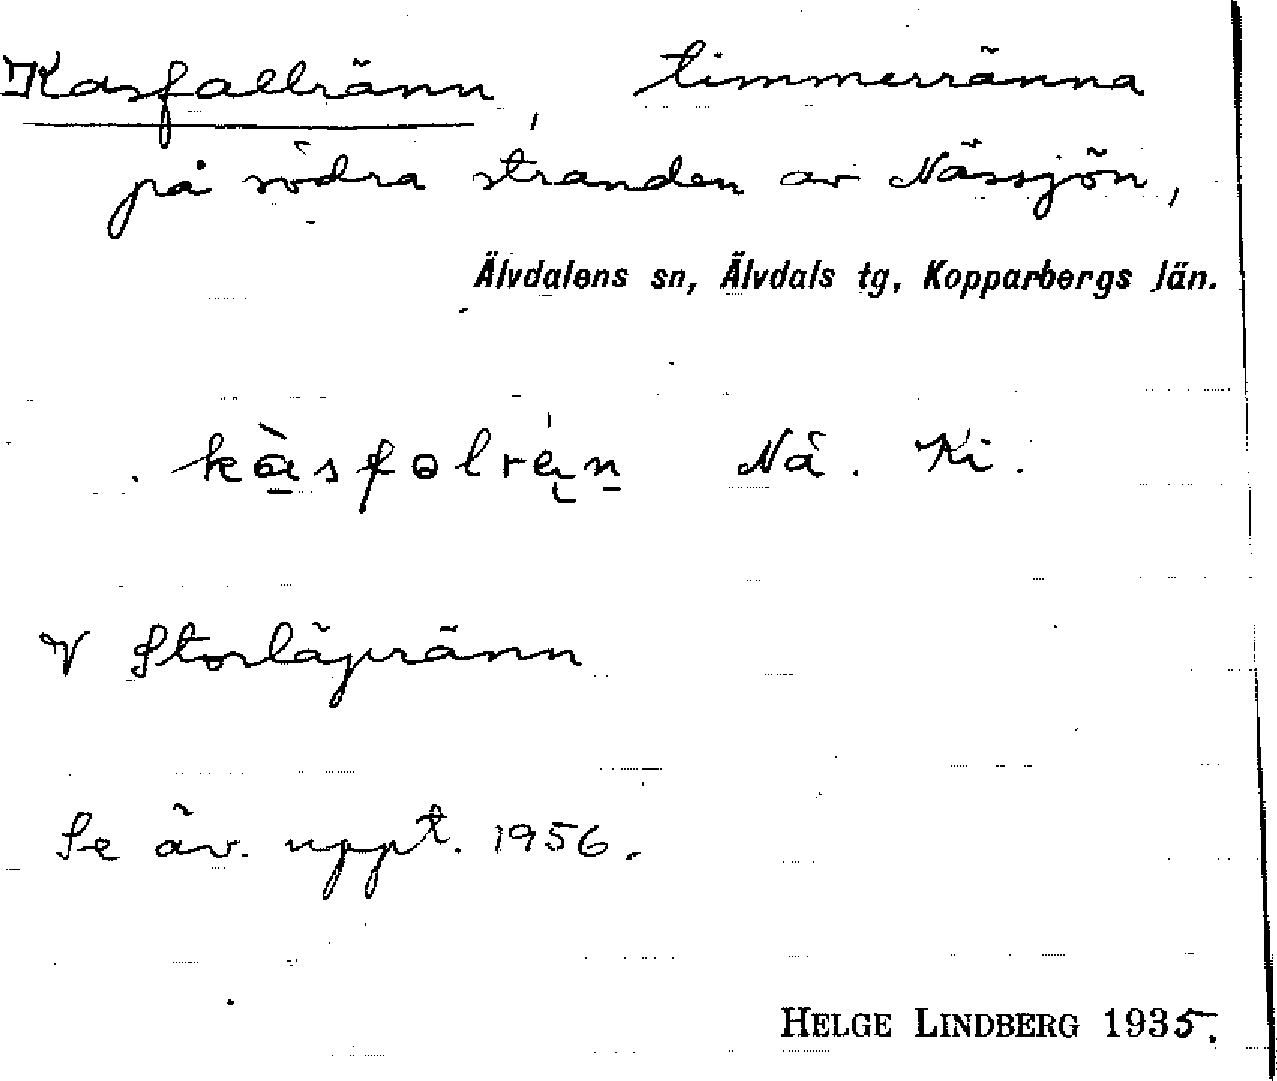 Kasfallränn, timmerränna
på södra stranden av Nässjön,
Älvdalens sn, Älvdals tg, Kopparbergs län.
Nå. Ki.
V Storläpränn
Se äv. uppt. 1956.
HELGE LINDBERG 1935.